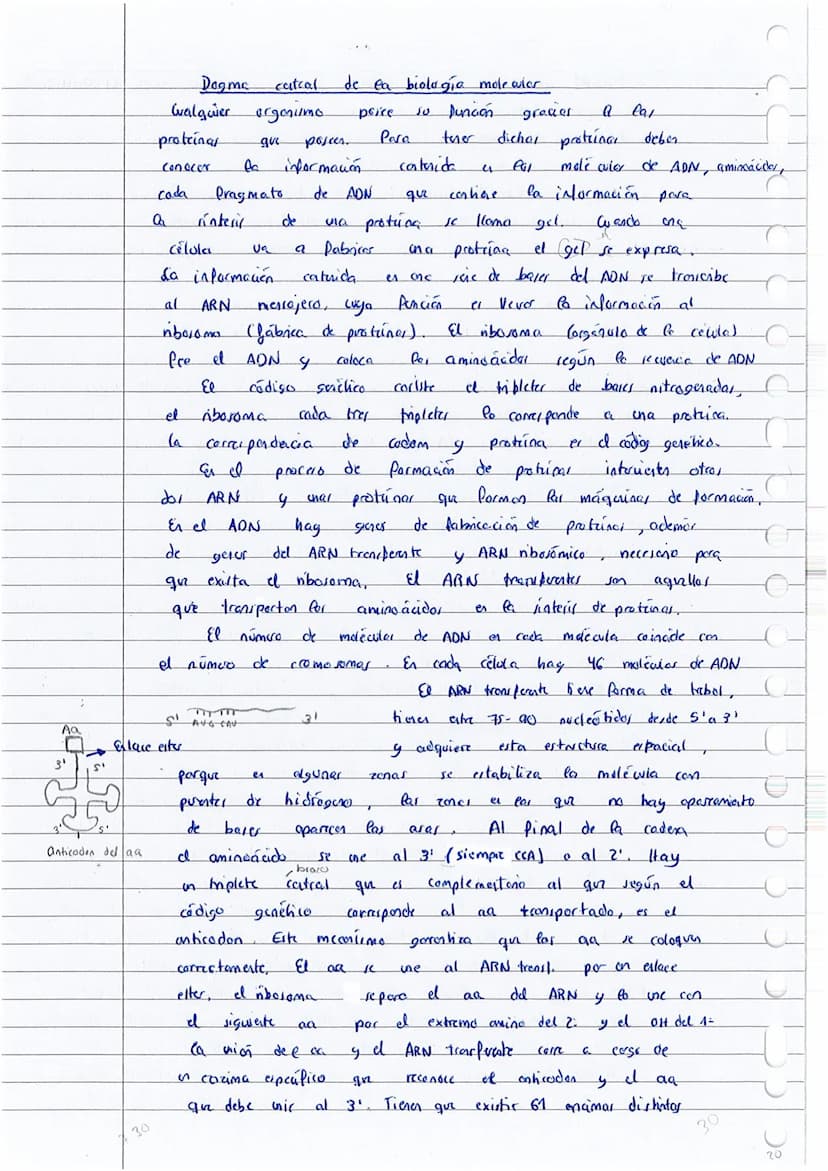 Dogma central de la biología molecular
Cualquier organismo posee su función gracias a las
proteínas que poseen. Para tener dichas proteínas deben
conocer la información contenida en las moléculas de ADN, aminoácidos,
cada fragmento de ADN que contiene la información para
la síntesis de una proteína se llama gel. Cuando una
célula va a fabricar una proteína el gel se expresa.
La información contenida en una serie de bases del ADN se transcribe
al ARN mensajero, cuya función es llevar la información al
ribosoma (fábrica de proteínas). El ribosoma (orgánulo de la célula)
lee el ADN y coloca los aminoácidos según la secuencia de ADN
El código genético consiste el tripletes de bases nitrogenadas,
el ribosoma cada tres tripletes lo corresponde a una proteína.
la correspondencia de codom y proteína es el código genético.
En el proceso de formación de proteínas intervienen otros
dos ARN y unas proteínas que forman las máquinas de formación.
En el ADN hay genes de fabricación de proteínas, además
de genes del ARN transferente y ARN ribosómico, necesario para
que exista el ribosoma. El ARN transferentes son aquellos
que transportan los aminoácidos en la síntesis de proteínas.
El número de moléculas de ADN en cada molécula coincide con
el número de cromosomas. En cada célula hay 46 moléculas de ADN
El ARN transferente tiene forma de trébol,
5' AUG CAU 3' tienen entre 75-90 nucleótidos desde 5' a 3'
Aa
Enlace ester y adquiere esta estructura espacial,
3' 5' porque en algunas zonas se estabiliza la molécula con
puentes de hidrógeno, las zonas en las que no hay apareamiento
3' 5' de bases aparecen las asas. Al final de la cadena
Anticodon del aa el aminoácido se une al 3' (siempre CCA) o al 2'. Hay
, brazo
un triplete central que es complementario al que según el
código genético corresponde al aa transportado, es el
anticodon. Este mecanismo garantiza que los aa se coloquen
correctamente. El aa se une al ARN transf. por un enlace
ester, el ribosoma separa el aa del ARN y lo une con
el siguiente aa por el extremo amino del 2º y el OH del 1º
la unión de el aa y el ARN transferente corre a cargo de
un enzima específico que reconoce el anticodon y el aa
que debe unir al 3'. Tienen que existir 61 enzimas distintos
30
30
20